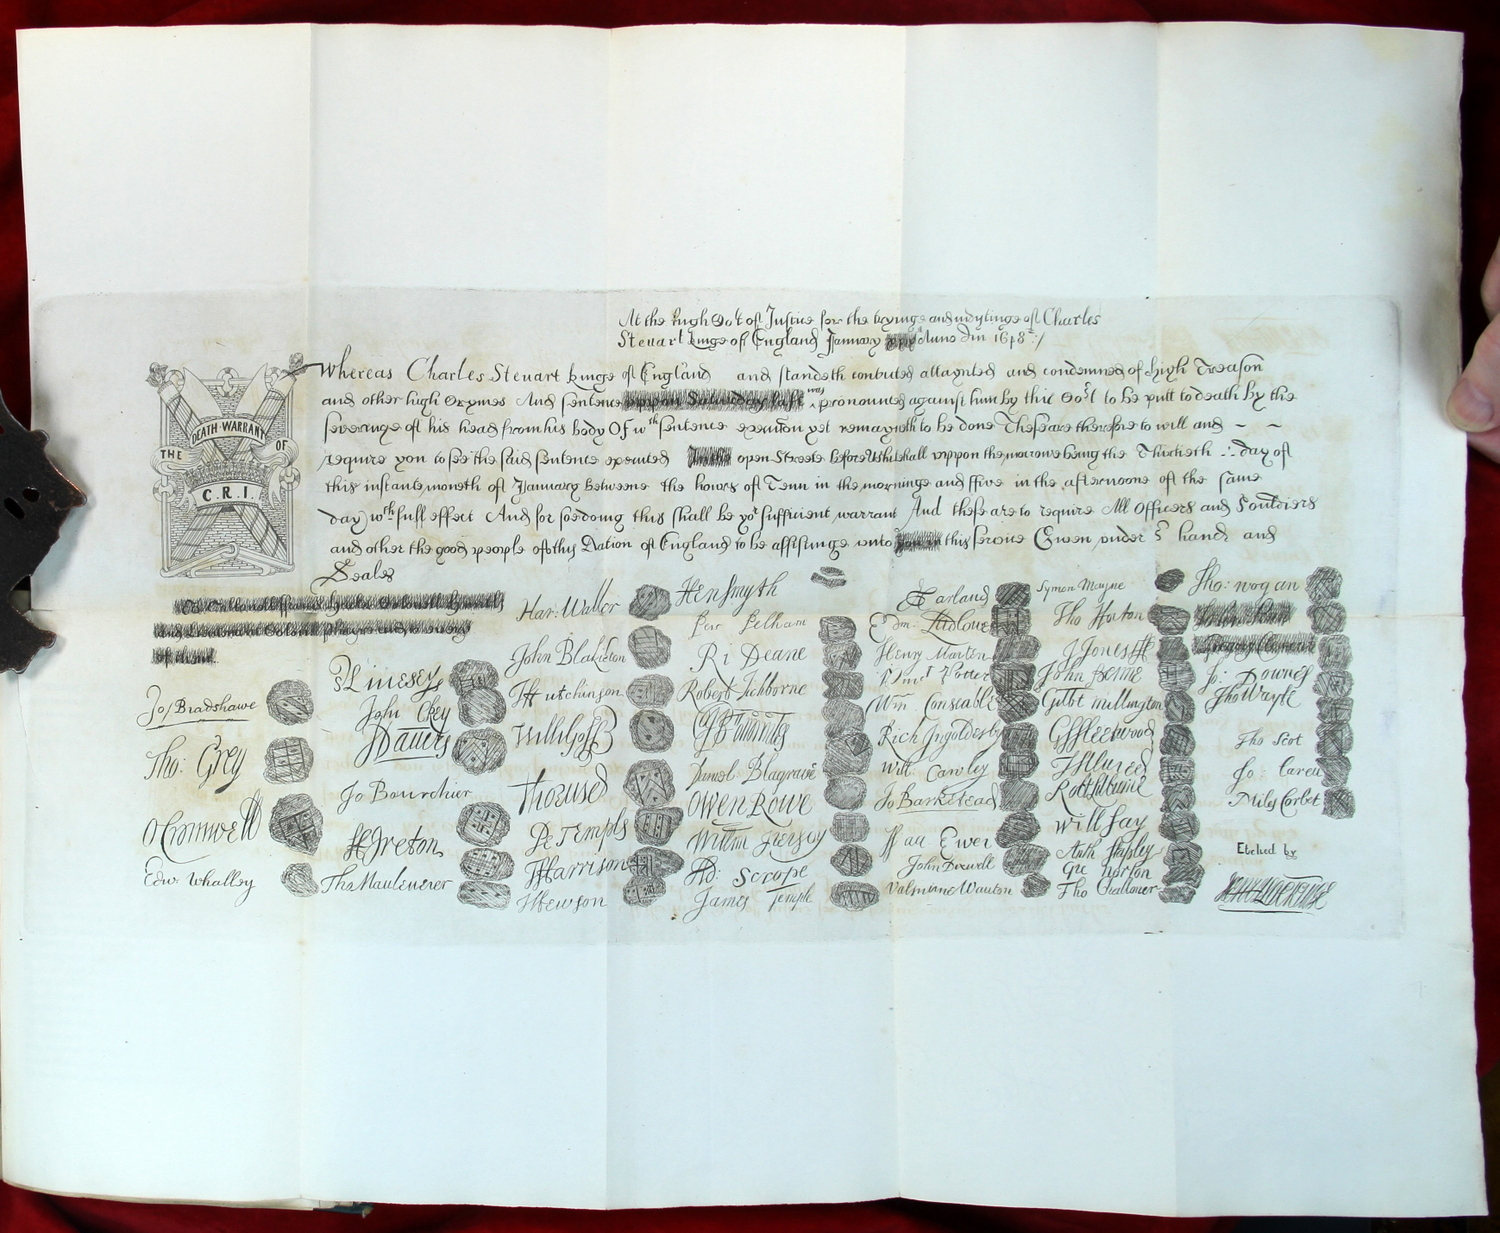 At the high Cot of Justice for the tryinge and iudginge of Charles
Steuart kinge of England January Anno Dni 1648:/
DEATH-WARRANT
THE
OF
C.R.I.
Whereas Charles Steuart kinge of England and standeth convicted attaynted and condemned of high Treason
and other high Crymes And sentence uppon Saturday last was pronounced against him by this Cort to be putt to death by the
severinge of his head from his body Of wth sentence execution yet remayneth to be done These are therefore to will and ~ ~
require you to see the said sentence executed In the open Streete before Whitehall uppon the morrowe being the Thirtieth day of
this instante moneth of January betweene the hours of Tenn in the morninge and ffive in the afternoone of the same
day wth full effect And for soe doing this shall be yor sufficient warrant And these are to require All Officers and Souldiers
and other the good people of this Nation of England to be assistinge unto you in this service Given under hands and
Seales
Jo/ Bradshawe
Tho: Grey
O Cromwell
Edw: Whalley
Livesey
John Okey
J Danvers
Jo Bourchier
H Ireton
Tho Mauleverer
Har: Waller
John Blakiston
J Hutchinson
Willi Goff
Tho Pride
Pe Temple
T Harrison
J Hewson
Hen Smyth
Per Pelham
Ri Deane
Robert Tichborne
Daniel Blagrave
Owen Rowe
Ad: Scrope
James Temple
A Garland
Edm: Ludlowe
Henry Marten
Vinct Potter
Wm Constable
Rich Ingoldesby
Will Cawley
Jo Barkstead
Isaa Ewer
John Dixwell
Valentine Wauton
Symon Mayne
Tho Horton
J Jones
John Penne
Gilbt Millington
G Fleetwood
J Alured
Robt Lilburne
Will Say
Anth Stapley
Gre Norton
Tho Challoner
Tho: Wogan
Gregory Clement
Jo: Downes
Tho Wayte
Tho Scot
Jo: Carew
Miles Corbet
Etched by